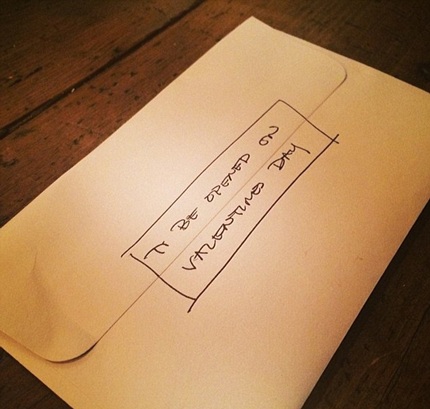 TO BE OPENED ON
VALENTINES DAY